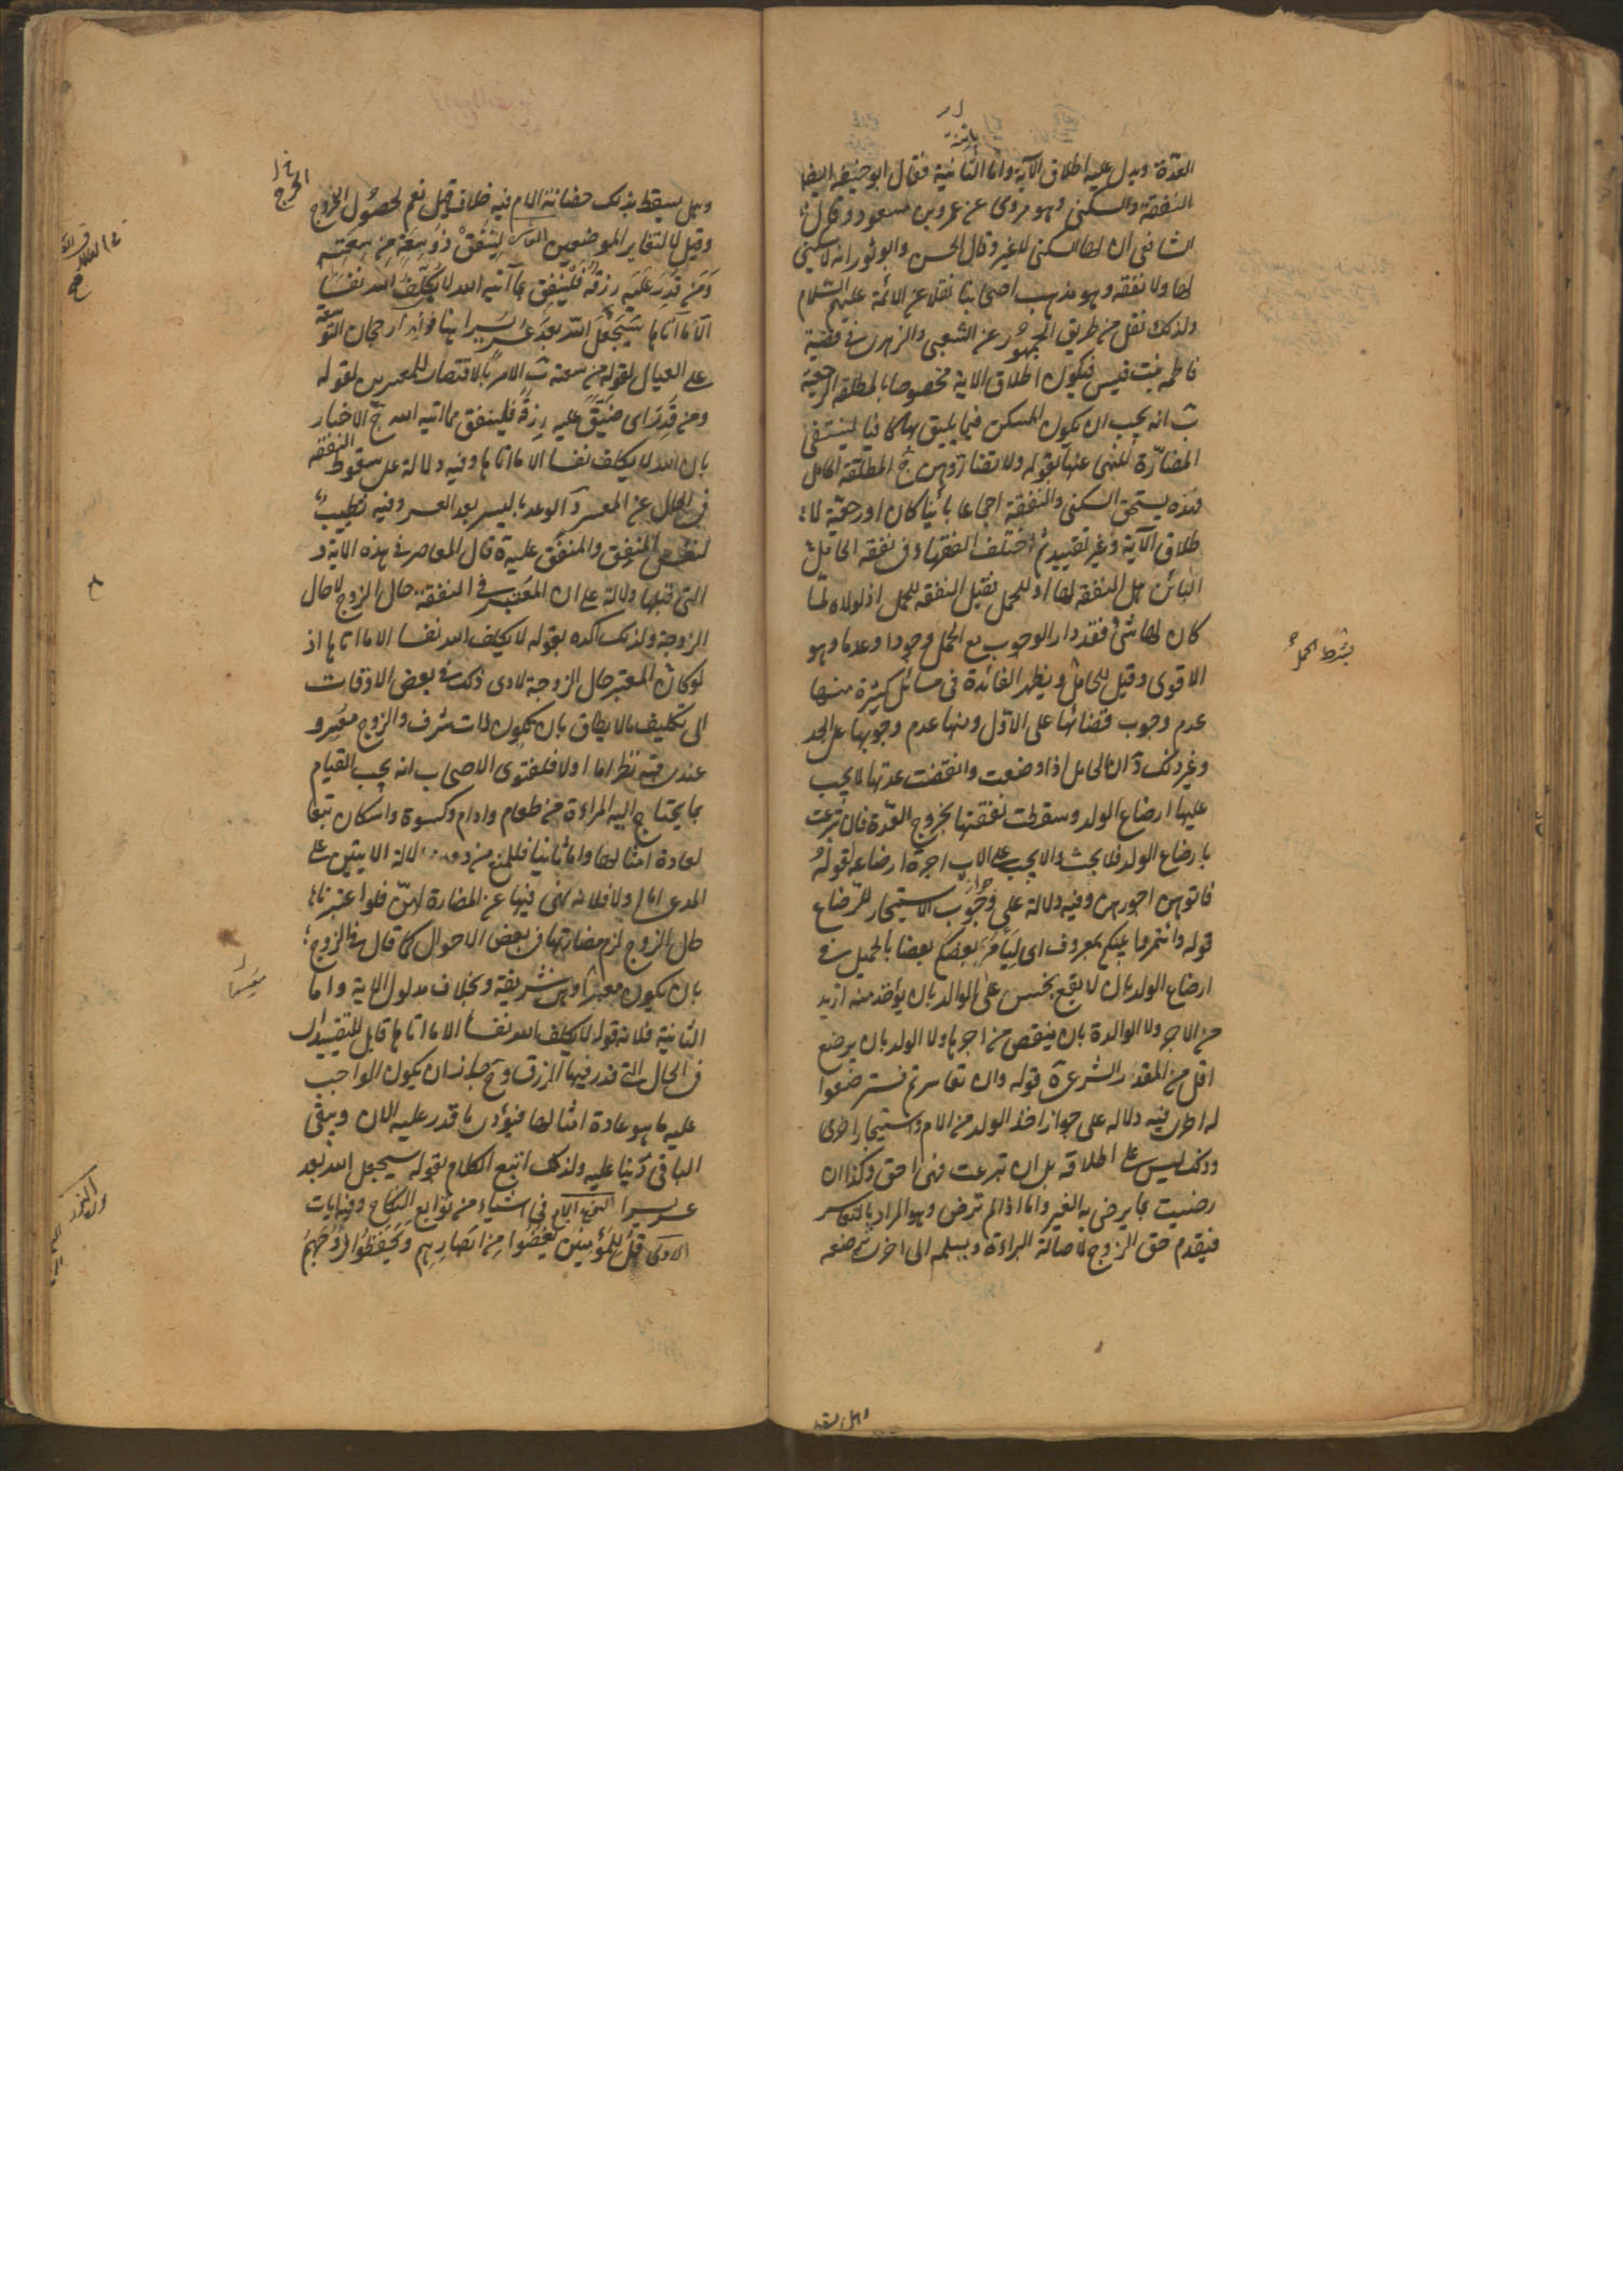 العدّة ويدل عليه اطلاق الآية واما الثانية فقال ابو حنيفة ايضا
بائنة
النفقة والسكنى وهو مروى عن عمر وبن مسعود وقال
الشافعى ان لها السكنى لا غير وقال الحسن وابو ثور انه لا سكنى
لها ولا نفقه وهو مذهب اصحابنا نقلا عن الائمة عليهم السّلام
ولذلك نقل من طريق الجمهُور عن الشعبى والزهرى فى قضية
فاطمه بنت قيس فيكون اطلاق الاية مخصوصا بالمطلقة الرجعية
ب انه يجب ان يكون المسكن فيما يليق بها كافيا لينتفى
المضارّة المنهى عنها بقوله ولا تضاروهن ج المطلقة الحامل
فهذه يستحق السكنى والنفقة اجماعا بائنا كان او رجعيّة لا
طلاق الآية وغير تقييد ثم اختلف الفقهاء فى نفقه الحامل
البائن هل النفقة لها او للحمل فقيل النفقه للحمل اذ لولاه لما
كان لها شئ فقد دار الوجوب مع الحمل وجودا وعدما وهو
بشرط الحمل
الاقوى وقيل للحامل ويظهر الفائدة فى مسائل كثيرة منها
عدم وجوب قضائها على الاوّل ومنها عدم وجوبها على الجد
وغير ذلك د ان الحامل اذا وضعت وانقضت عدتها لا يجب
عليها ارضاع الولد وسقطت نفقتها بخروج العدّة فان تبرعت
بارضاع الولد فلا بحث والا يجب على الاب اجرة ارضاعه لقوله
فاتوهن اجورهن وفيه دلالة على وجوب الاستيجار للرضاع
جواز
قوله وائتمروا بينكم بمعروف اى ليأمر بعضكم بعضا بالجميل فى
ارضاع الولد بان لا يقع بخس على الوالد بان يؤخذ منه ازيد
من الاجر ولا الوالدة بان ينقص من اجرها ولا الولد بان يرضع
اقل من المقدر الشرعى ة قوله وان تعاسرتم فسترضعوا
له اخرى فيه دلاله على جواز اخذ الولد من الام واستيجار اخرى
وذلك ليس على اطلاقه بل ان تبرعت فهى احق وكذا ان
رضيت بما يرضى به الغير واما اذا لم ترض وهو المراد بالتعاسر
فيقدم حق الزوج لاصالة البراءة ويسلمه الى اخرى ترضعه
وهل يسقط
وهل يسقط بذلك حضانة الام فيه خلاف قيل نعم لحصول الخروج
الحرج
وقيل لا لتغاير الموضعين لِيُنفِقْ ذُو سَعَةٍ مِن سَعَتِهِ
وَمَن قُدِرَ عَلَيهِ رِزقُهُ فَليُنفِق مِمّا آتيه الله لا يُكَلِّفُ الله نَفسًا
الّا مَا آتاها سَيَجعَلُ اللّه بَعدَ عُسرٍ يُسرا هنا فوائد ا رجحان التوسعة
على العيال لقوله من سعته ب الامر بالاقتصار للمعسرين لقوله
ومن قُدِرَ اى ضَيّق عليه رزقه فلينفق مما اتيه الله ج الاخبار
بان الله لا يكلف نفسا الا ما اتاها وفيه دلالة على سقوط النفقه
فى الحال عن المعسر د الوعد باليسر بعد العسر وفيه تطييب
لنفس المنفِق والمنفَق عليه ة قال المعاصر فى هذه الاية و
التى قبلها دلالة على ان المعتبر فى النفقة حال الزوج لا حال
الزوجة ولذلك اكده بقوله لا يكلف الله نفسا الا ما اتاها اذ
لو كان المعتبر حال الزوجة لادى ذلك فى بعض الاوقات
الى تكليف ما لا يطاق بان تكون ذات شرف والزوج معسر و
عندى فيه نظر اما اولا فلفتوى الاصحاب انه يجب القيام
بما يحتاج اليه المراءة من طعام وادام وكسوة واسكان تبعا
لعادة امثالها واما ثانيا فللمنع من دلالة الايتين على
المدعى اما الاولى فلانه نهى فيها عن المضارة لهنّ فلو اعتبرنا
حال الزوج لزم مضارتها فى بعض الاحوال كما قال فى الزوج
بان يكون معسرا وهى شريفة وبخلاف مدلول الاية واما
الثانية فلان قوله لا يكلف الله نفسا الا ما اتاها قابل للتقييد
فى الحال التى قدر فيها الرزق وح جاز ان يكون الواجب
عليه ما هو عادة امثالها فيؤدى ما قدر عليه الان ويبقى
الباقى دَينا عليه ولذلك اتبع الكلام بقوله سيجعل الله بعد
عسر يسرا النوع الرابع فى اشياء من توابع النكاح وفيه ايات
الاولى قُل لِلمُؤمِنِينَ يَغُضُّوا مِن اَبصَارِهِم وَيَحفَظُوا فُرُوجَهُم